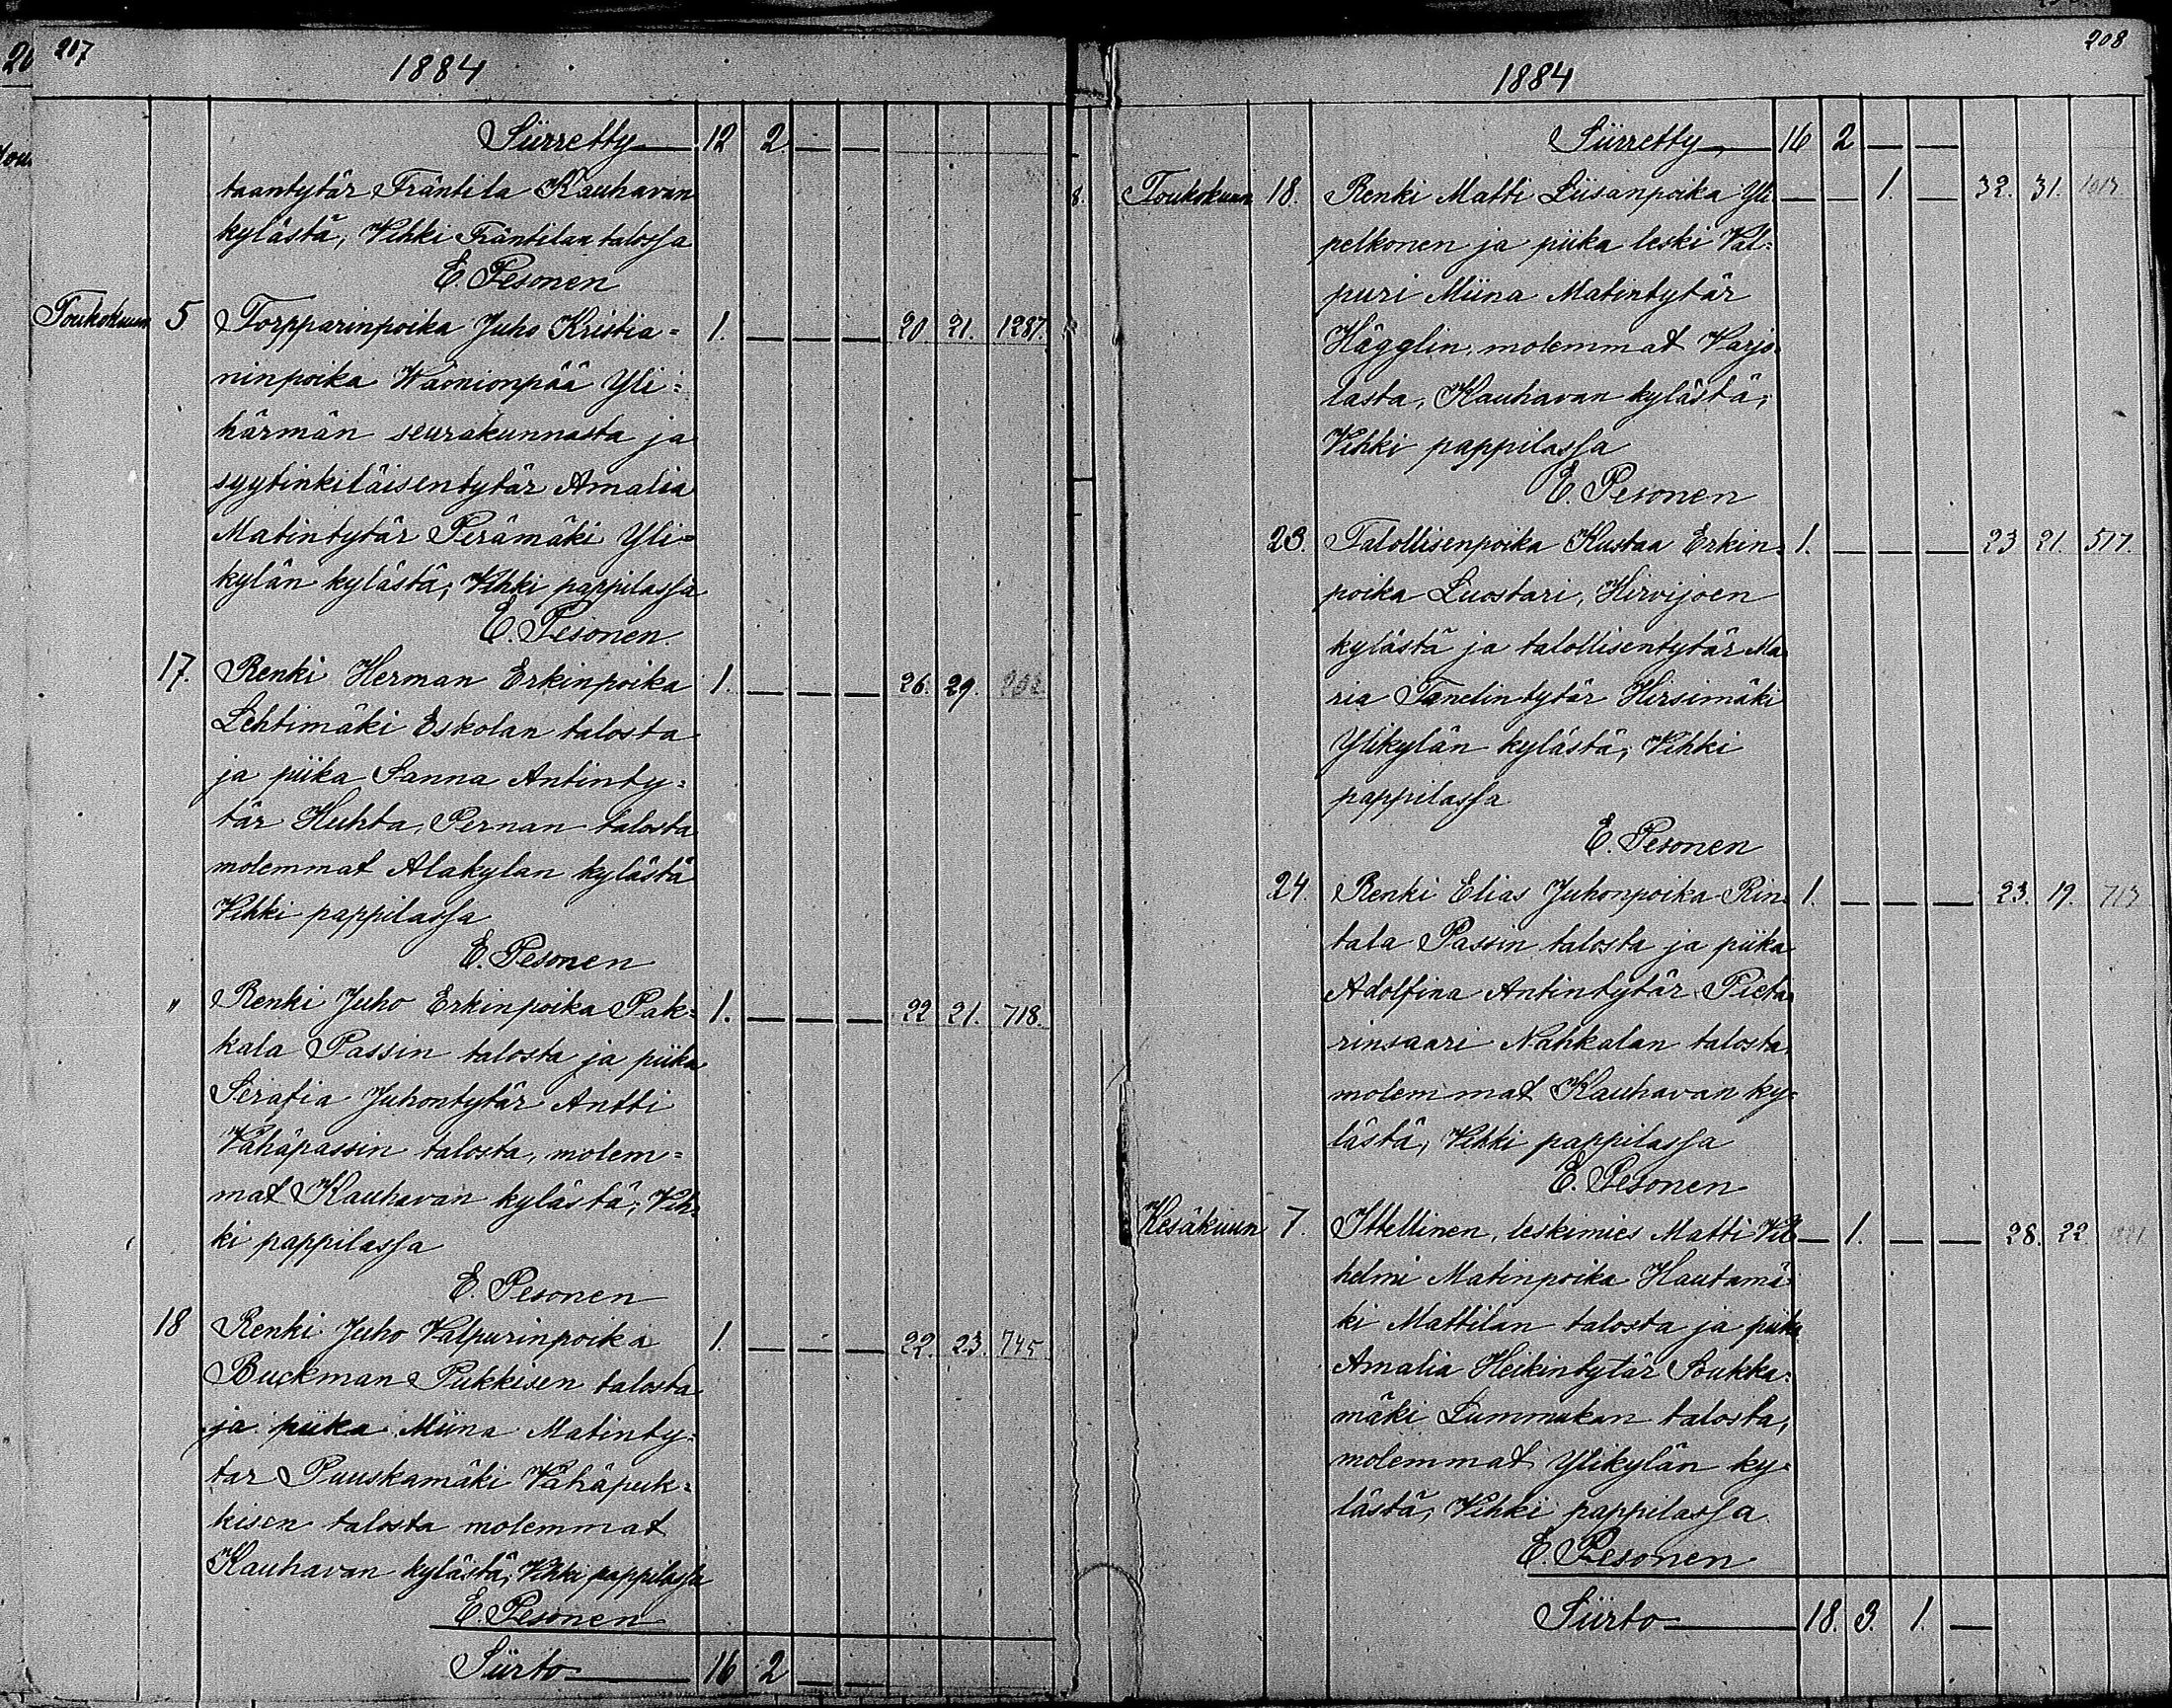 207
1884
Siirretty 12 2 — —
taantytär Fräntila Kauhavan
kylästä, Vihki Fräntilan talossa
E. Pesonen
Toukokuun 5 Torpparinpoika Juho Kristia= 1. — — — 20 21. 1287.
ninpoika Wäonionpää Yli=
härmän seurakunnasta ja
syytinkiläisentytär Amalia
Matintytär Perämäki Yli=
kylän kylästä; Vihki pappilassa
E. Pesonen.
17. Renki Herman Erkinpoika 1. — — — 26. 29.
Lehtimäki Eskolan talosta
ja piika Sanna Antinty=
tär Huhta, Pernan talosta
molemmat Alakylan kylästä
Vihki pappilassa
E. Pesonen
" Renki Juho Erkinpoika Pak= 1. — — — 22 21. 718.
kala Passin talosta ja piika
Serafia Juhontytär Antti
Vähäpassin talosta, molem=
mat Kauhavan kylästä; Vih=
ki pappilassa
E. Pesonen
18 Renki Juho Valpurinpoika 1. — — — 22. 23. 745
Buckman Pukkisen talosta
ja piika Miina Matinty=
tar Puuskamäki Vähäpuk=
kisen talosta molemmat
Kauhavan kylästä; Vihki pappilassa
E. Pesonen
Siirto 16 2 — —
208
1884
Siirretty 16 2 — —
Toukokuun 18. Renki Matti Liisanpoika Yli — — 1. — 32. 31.
pelkonen ja piika leski Val=
puri Miina Matintytär
Hägglin, molemmat Varjo=
lasta, Kauhavan kylästä;
Vihki pappilassa
E. Pesonen
23. Talollisenpoika Kustaa Erkin= 1. — — — 23 21. 517.
poika Luostari, Hirvijoen
kylästä ja talollisentytär Ma=
ria Tanelintytär Hirsimäki
Ylikylän kylästä; Vihki
pappilassa
E. Pesonen
24. Renki Elias Juhonpoika Rin= 1. — — — 23. 19. 713
tala Passin talosta ja piika
Adolfina Antintytär Pieta=
rinsaari Nahkalan talosta
molemmat Kauhavan ky=
lästä, Vihki pappilassa
E. Pesonen
Kesäkuun 7. Itellinen, leskimies Matti Vil= — 1. — — 28. 22
helmi Matinpoika Hautamä=
ki Mattilan talosta ja piika
Amalia Heikintytär Soukka=
mäki Lummukan talosta,
molemmat Ylikylän ky=
lästä, Vihki pappilassa
E. Pesonen
Siirto 18. 3. 1. —